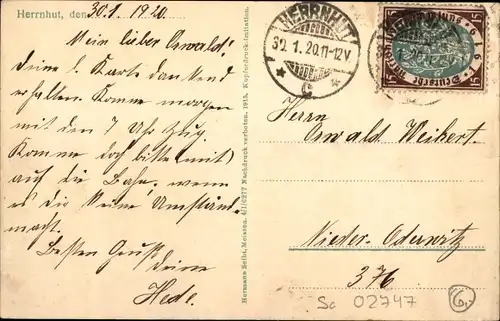 Herrnhut, den 30.1.1920.
Mein lieber Oswald!
Deine l. Karte dankend
erhalten. Komme morgen
mit dem 7 Uhr Zug.
Komme doch bitte (mit)
auf die Bahn, wenn
es Dir keine Umstände
macht.
Besten Gruß
Deine
Hede.
Hermann Seibt, Meissen. 41/0277 Nachdruck verboten. 1915. Kupferdruck-Imitation.
HERRNHUT
30.1.20.11-12V
* c *
Deutsche
1919
15
Herrn
Oswald Weikert.
Nieder-Oderwitz
376
Sa 02747
6,-